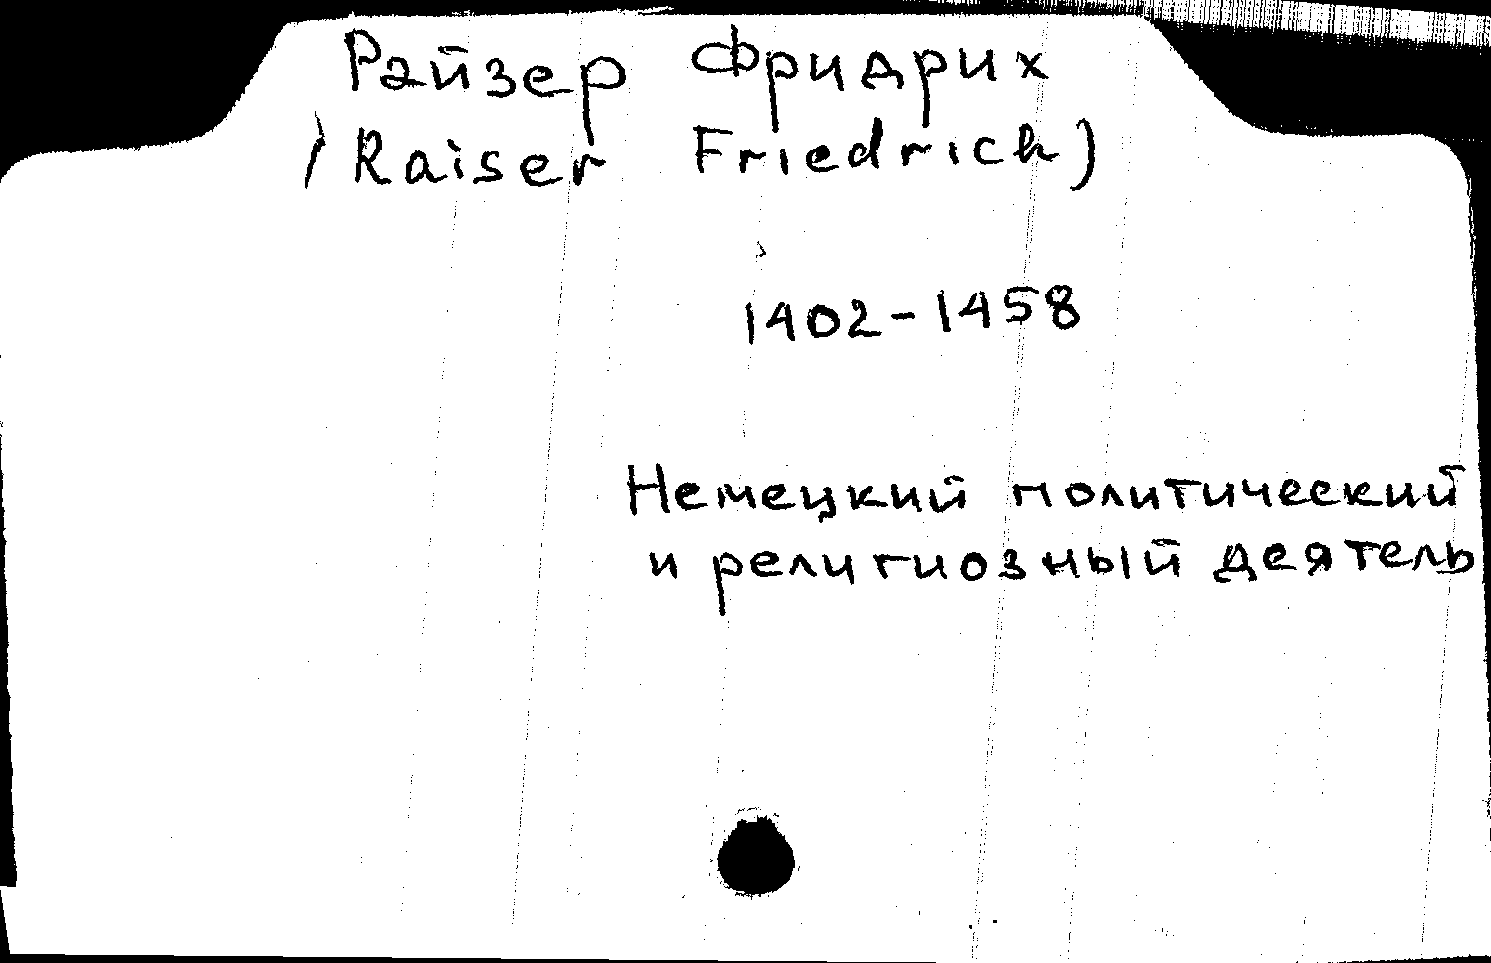 Райзер Фридрих
(Raiser Friedrich)
1402-1458
Немецкий политический
и религиозный деятель